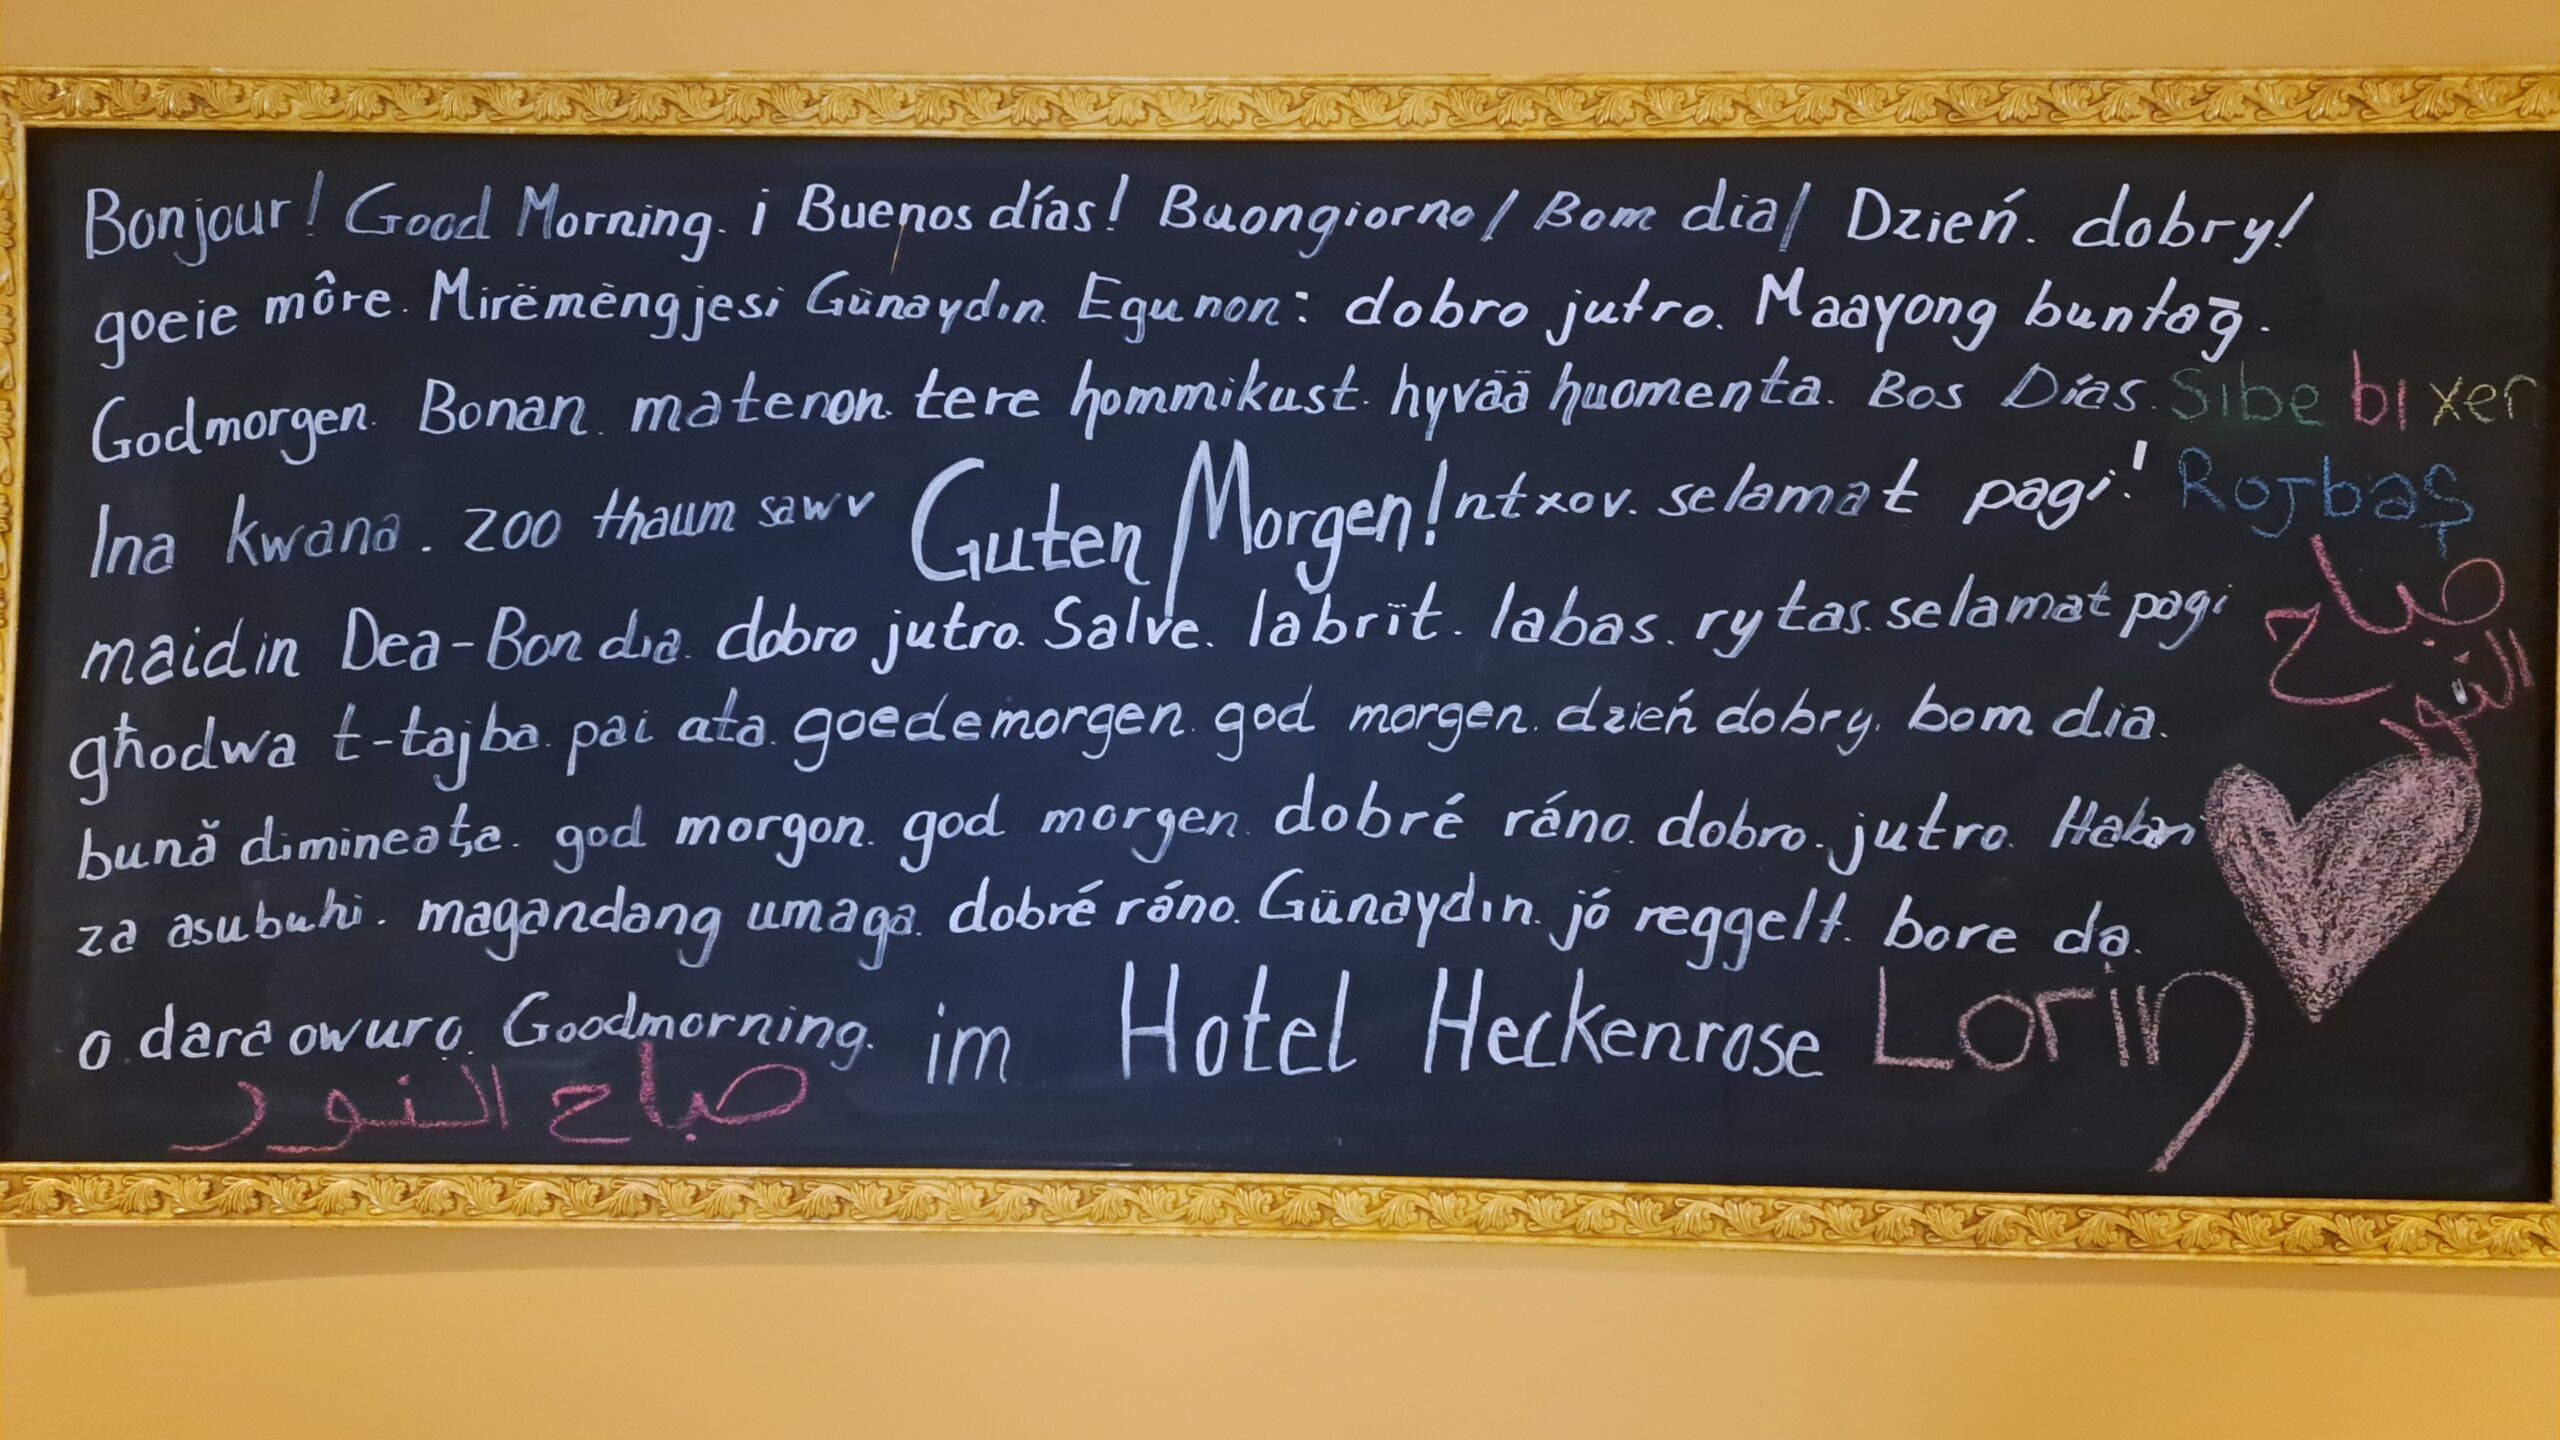 Bonjour! Good Morning. i Buenos días! Buongiorno! Bom dia! Dzień. dobry!
goeie môre. Mirëmèngjesi Günaydın. Egunon: dobro jutro. Maayong buntaḡ.
Godmorgen. Bonan. matenon. tere hommikust. hyvää huomenta. Bos Días. Sibe bi xer
Ina kwana. zoo thaum sawv Guten Morgen! ntxov. selamat pagi! Rojbaş
maidin Dea-Bon dia. dobro jutro. Salve. labrït. labas. rytas. selamat pagi
صباح
النور
għodwa t-tajba. pai ata. goedemorgen. god morgen. dzień dobry. bom dia.
bună dimineaţe. god morgon. god morgen. dobré ráno. dobro. jutro. Habari
za asubuhi. magandang umaga. dobré ráno. Günaydın. jó reggelt. bore da.
o dara owurọ. Goodmorning. im Hotel Heckenrose Lorin
صباح النور